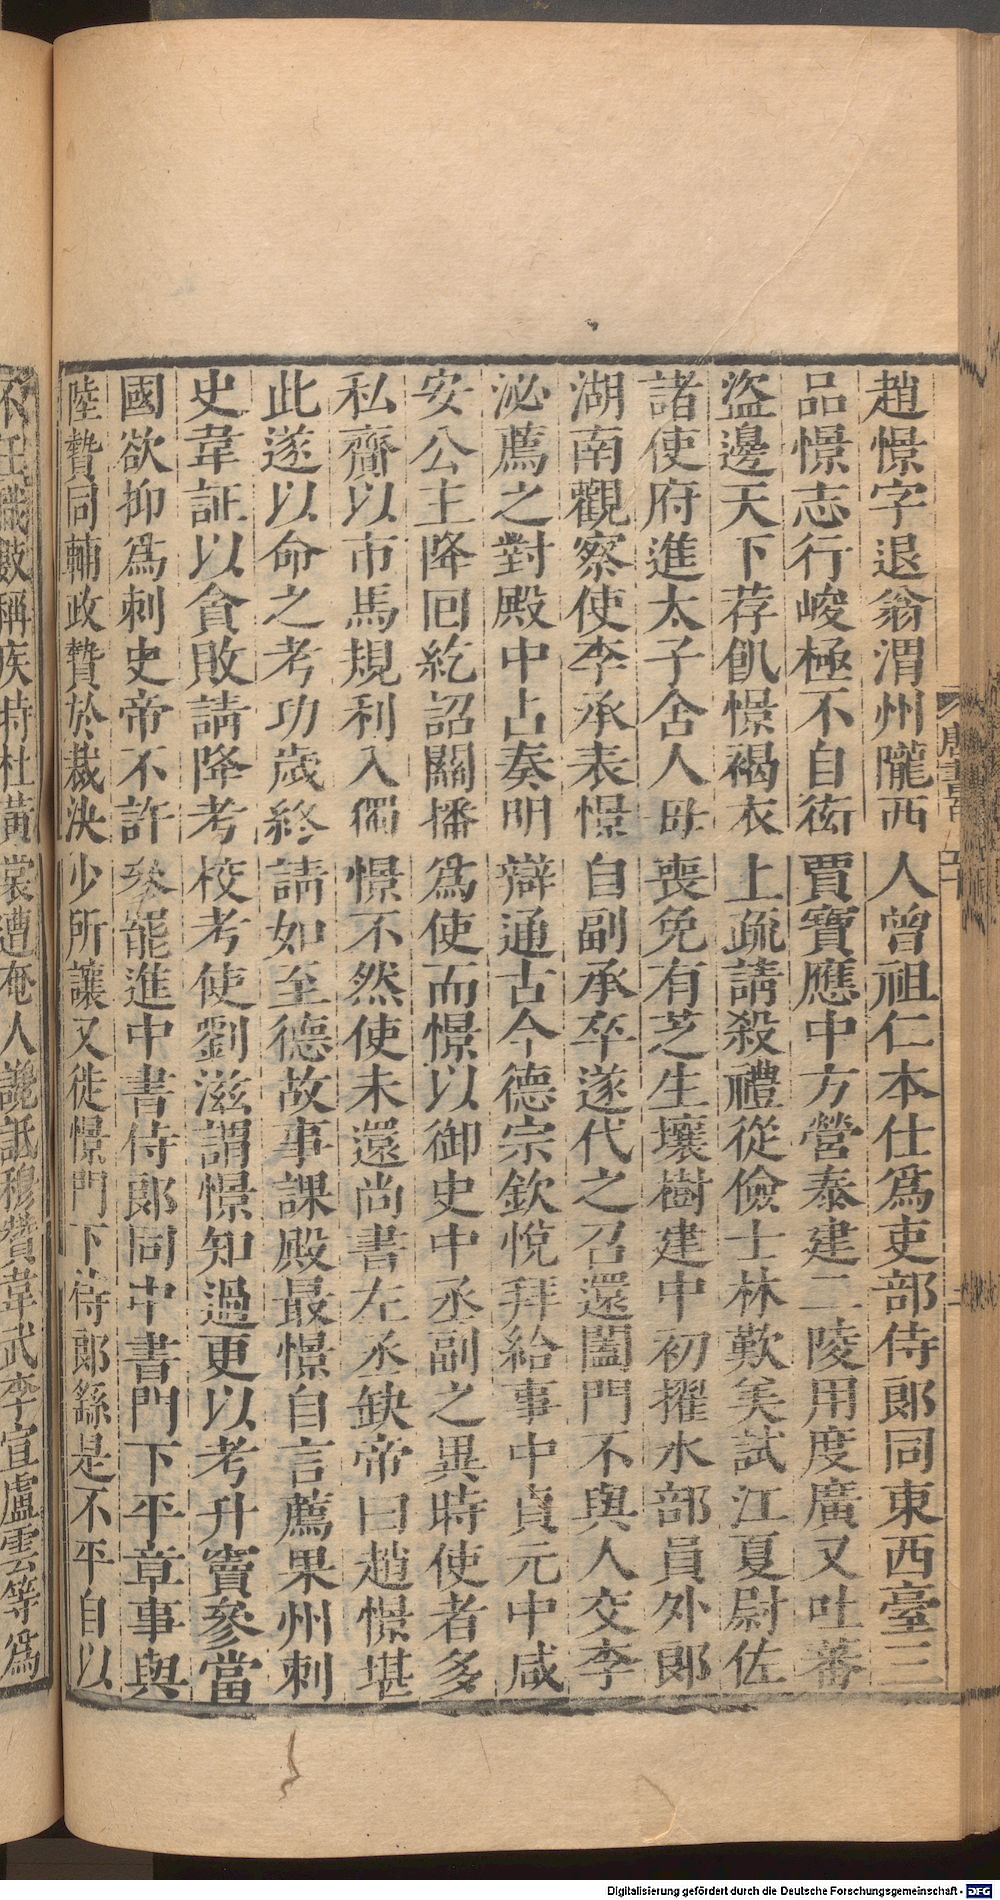 趙憬字退翁渭州隴西人曾祖仁本仕爲吏部侍郎同東西臺三
品憬志行峻極不自衒賈寶應中方營泰建二陵用度廣又吐蕃
盜邊天下荐飢憬褐衣上疏請殺禮從儉士林歎美試江夏尉佐
諸使府進太子舍人毋喪免有芝生壤樹建中初擢水部員外郎
湖南觀察使李承表憬自副承卒遂代之召還闔門不與人交李
泌薦之對殿中占奏明辯通古今德宗欽悅拜給事中貞元中咸
安公主降回紇詔關播爲使而憬以御史中丞副之異時使者多
私齎以市馬規利入獨憬不然使未還尚書左丞缺帝曰趙憬堪
此遂以命之考功歲終請如至德故事課殿最憬自言薦果州刺
史韋証以貪敗請降考校考使劉滋謂憬知過更以考升竇參當
國欲抑爲刺史帝不許參罷進中書侍郎同中書門下平章事與
陸贄同輔政贄於裁決少所讓又徙憬門下侍郎繇是不平自以
不任職數稱疾時杜黃裳遭奄人讒詆穆贊韋武李宣盧雲等爲
唐書
Digitalisierung gefördert durch die Deutsche Forschungsgemeinschaft - DFG